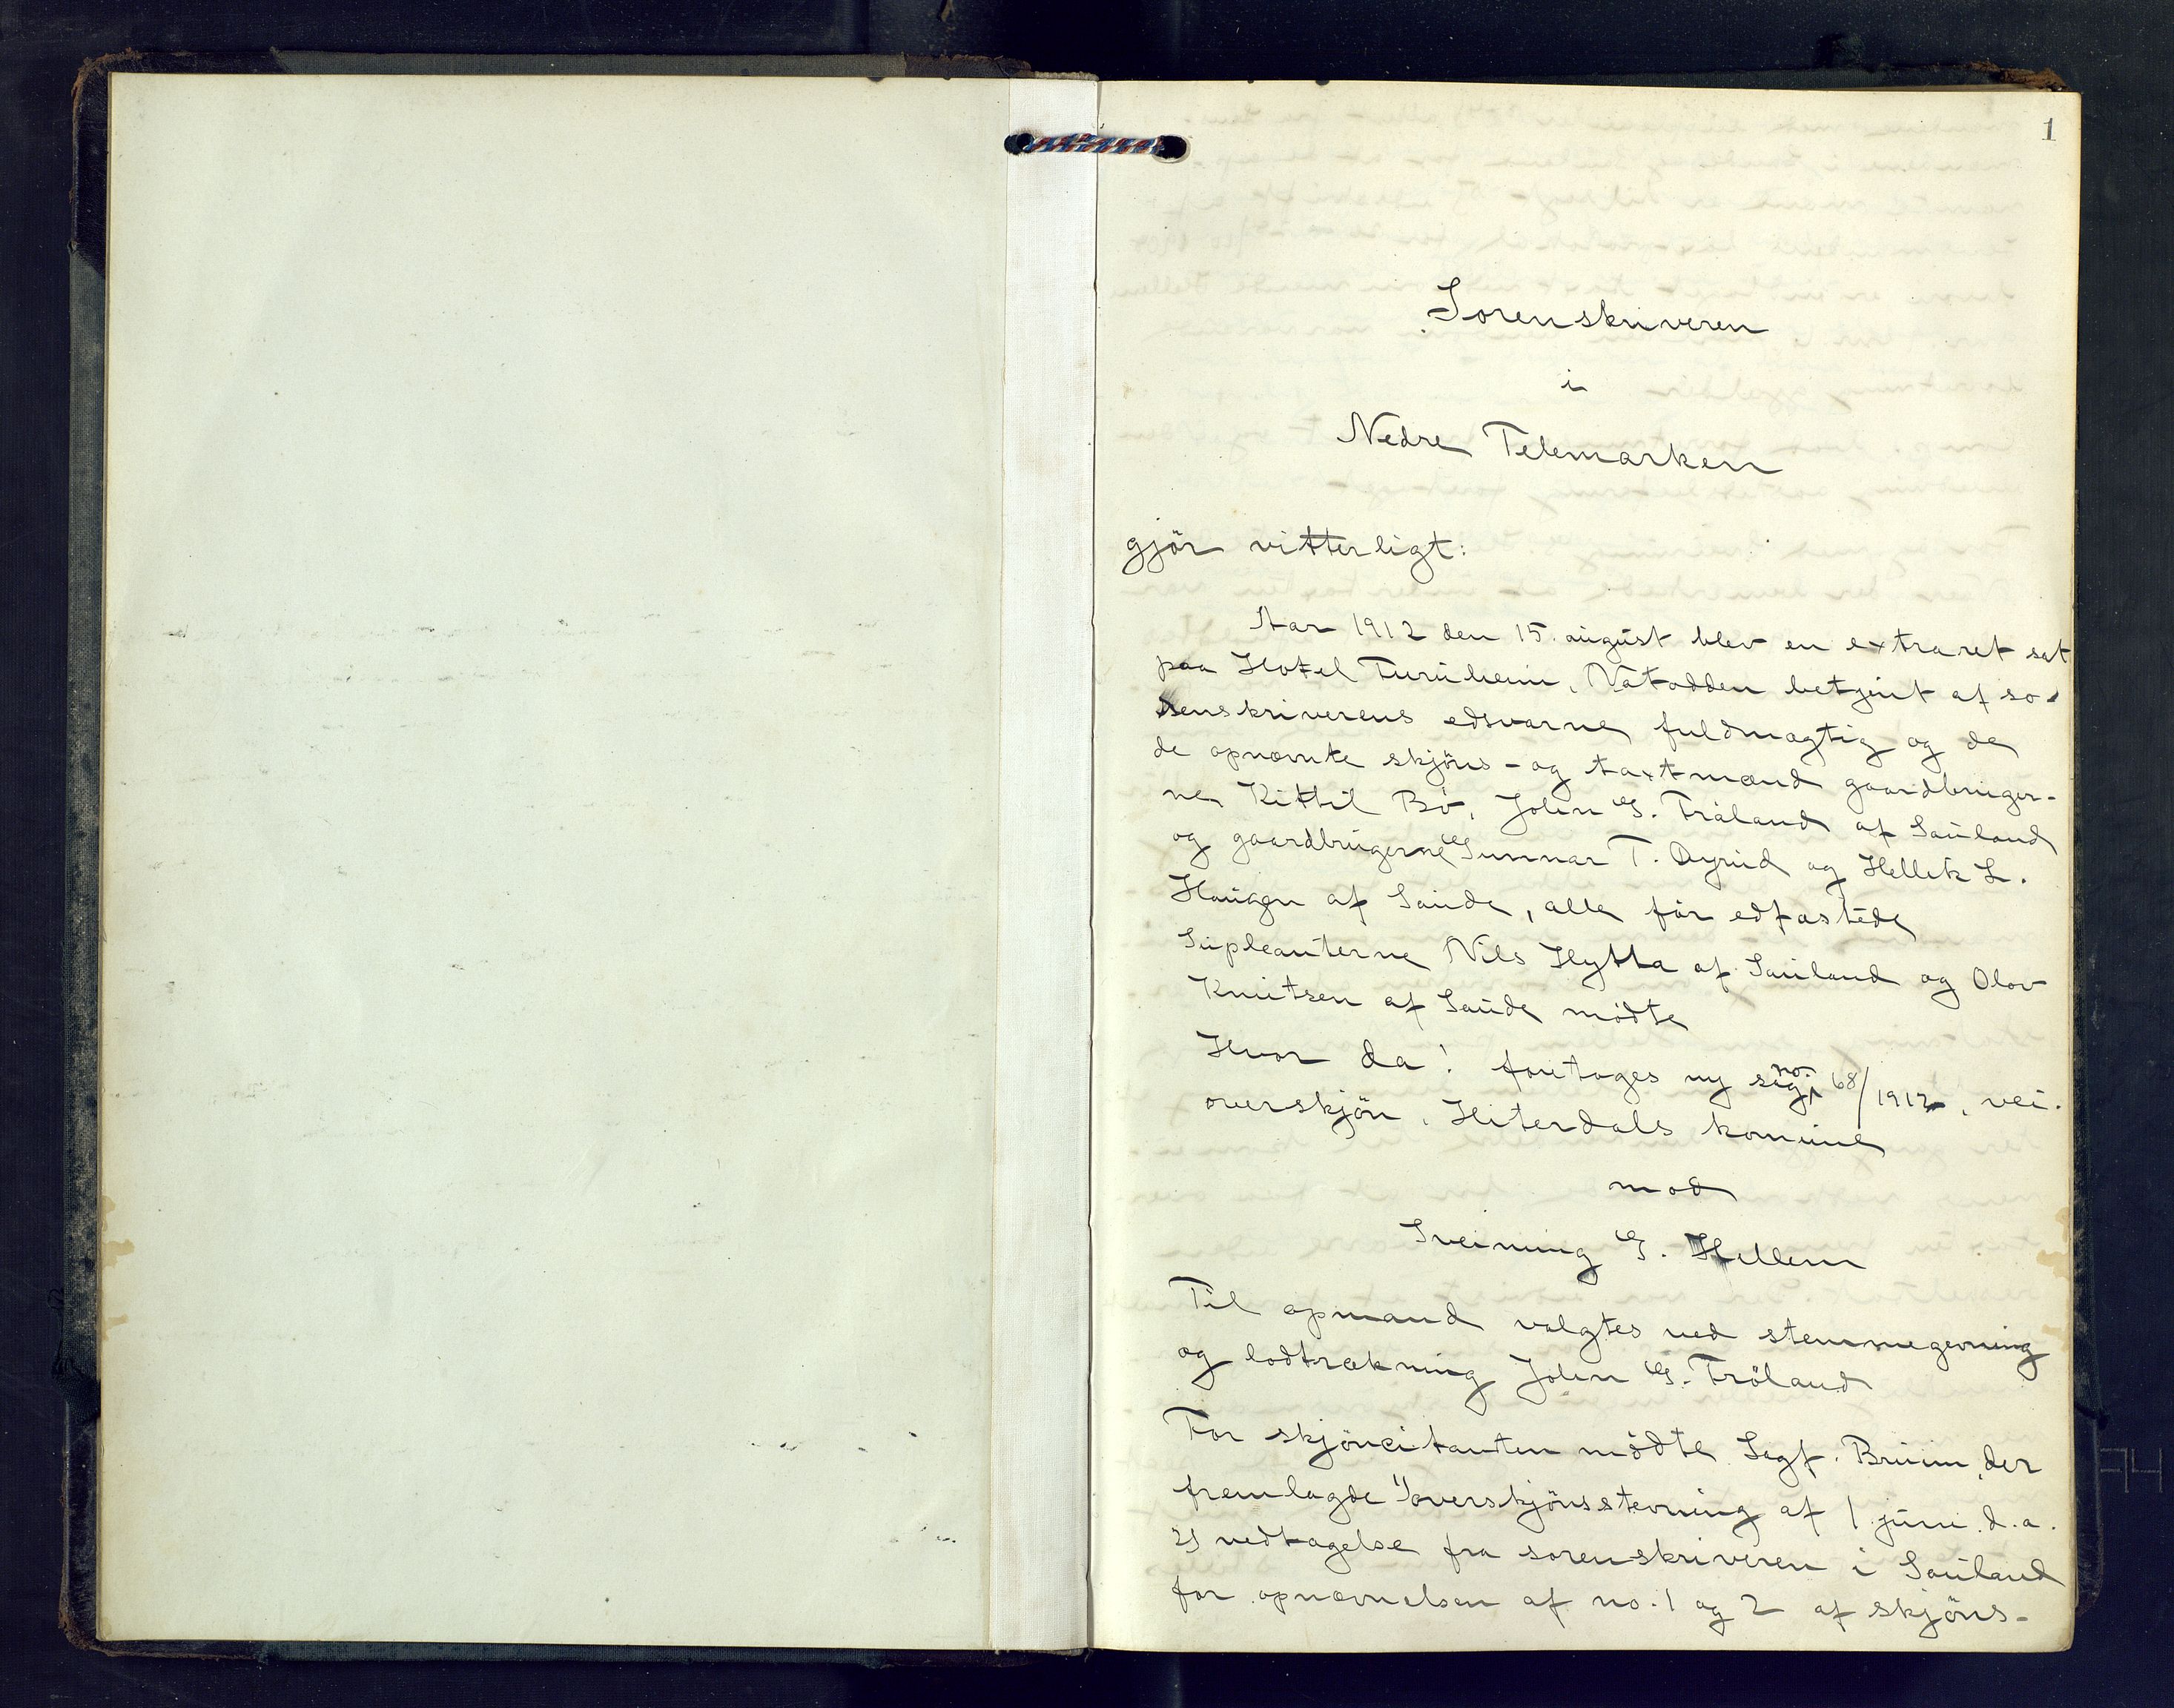 1
Sorenskriveren
i
Nedre Telemarken
gjör vitterligt:
Aar 1912 den 15. august blev en extraret sat
paa Hotel Furuheim, Notodden betjent af so-
renskriverens edsvorne fuldmægtig og de
de opnævnte skjöns- og taxtmænd gaardbruger-
ne Kittil Bö, John G. Tråland af Sauland
og gaardbrugerne Gunnar T. og Hellek L.
Haugen af Saude, alle för edfæstede
Supleanterne Nils Hytta af Sauland og Olov
Knutsen af Saude mödte
Hvor da! foretages ny sag no. 68/1912, vei-
overskjön. Hiterdals komune
mod
Sveinung G. Hellem
Til opmand valgtes ved stemmegivning
og lodtrækning John G. Tröland
For skjöncitanten mödte Sagf. Bruun, der
fremlagde 1) overskjönsstevning af 1 juni d.a.
2) vedtagelse fra sorenskriveren i Sauland
for opnævnelsen af no. 1 og 2 af skjöns-